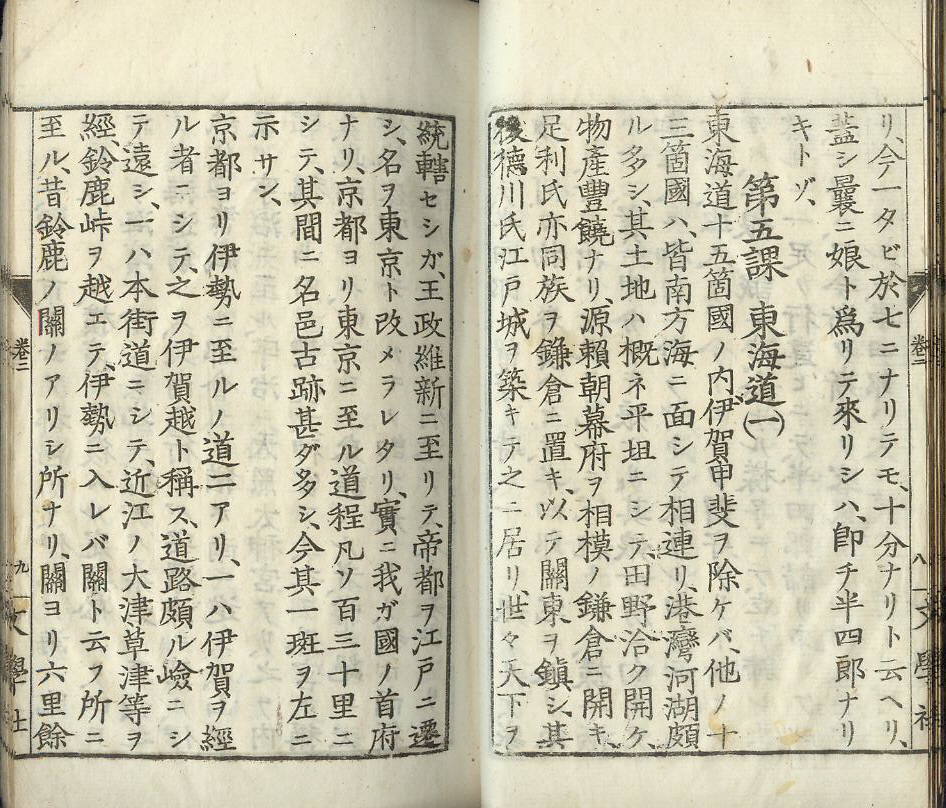 リ、今一タビ於七ニナリテモ、十分ナリト云ヘリ、
蓋シ曩ニ娘ト爲リテ來リシハ、卽チ半四郎ナリ
キトゾ、
第五課 東海道(一)
東海道十五箇國ノ內、伊賀甲斐ヲ除ケバ、他ノ十
三箇國ハ、皆南方海ニ面シテ相連リ、港灣河湖頗
ル多シ、其土地ハ概ネ平坦ニシテ、田野洽ク開ケ、
物產豐饒ナリ、源賴朝幕府ヲ相模ノ鎌倉ニ開キ、
足利氏亦同族ヲ鎌倉ニ置キ、以テ關東ヲ鎭シ、其
後德川氏江戶城ヲ築キテ之ニ居リ、世々天下ヲ
卷二
八
文學社
統轄セシガ、王政維新ニ至リテ、帝都ヲ江戶ニ遷
シ、名ヲ東京ト改メラレタリ、實ニ我ガ國ノ首府
ナリ、京都ヨリ東京ニ至ル道程凡ソ百三十里ニ
シテ、其間ニ名邑古跡甚ダ多シ、今其一斑ヲ左ニ
示サン、
京都ヨリ伊勢ニ至ルノ道二アリ、一ハ伊賀ヲ經
ル者ニシテ、之ヲ伊賀越ト稱ス、道路頗ル嶮ニシ
テ遠シ、一ハ本街道ニシテ、近江ノ大津草津等ヲ
經、鈴鹿峠ヲ越エテ、伊勢ニ入レバ關ト云フ所ニ
至ル、昔鈴鹿ノ關ノアリシ所ナリ、關ヨリ六里餘
卷二
九
文學社